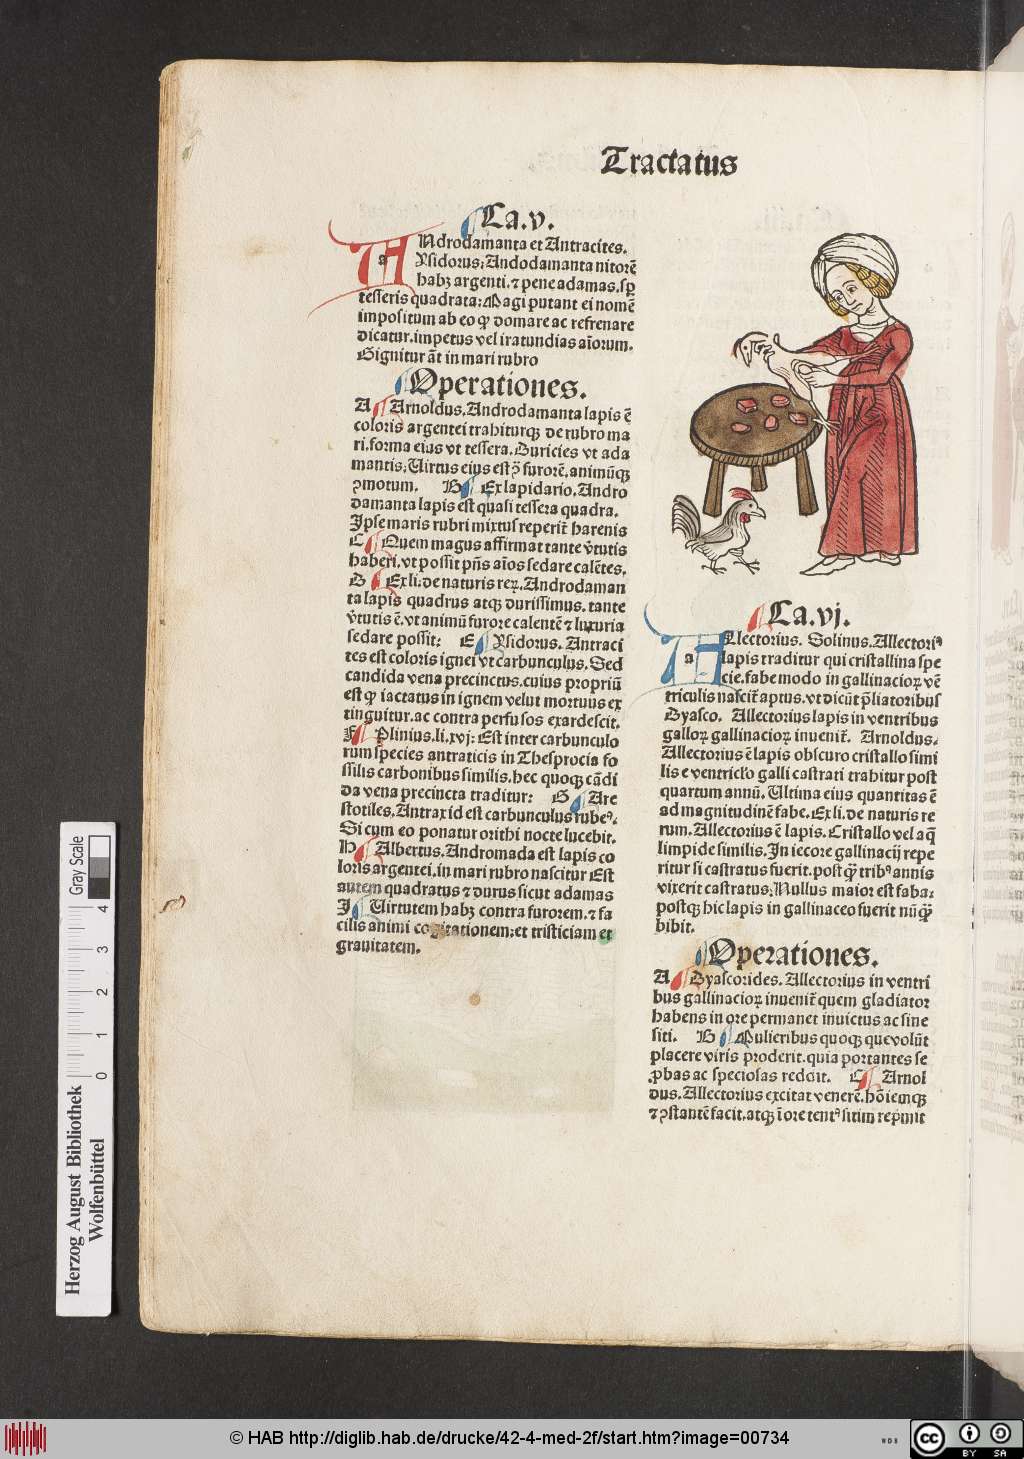 Tractatus
Ca.v.
ANdrodamanta et Antracites.
a
Ysidorus: Andodamanta nitorē
habꝫ argenti. ⁊ pene adamas. sꝑ
tesseris quadrata: Magi putant ei nomē
impositum ab eo ꝙ domare ac refrenare
dicatur. impetus vel iratundias aīorum.
Gignitur āt in mari rubro
Operationes.
A Arnoldus. Androdamanta lapis ē
coloris argentei trahiturqꝫ de rubro ma
ri. forma eius vt tessera. Duricies vt ada
mantis: Uirtus eius est ꝯ furorē. animūqꝫ
ꝯmotum. B Ex lapidario. Andro
damanta lapis est quasi tessera quadra.
Ipse maris rubri mixtus reperit̄ harenis
C Quem magus affirmat tante v̓tutis
haberi. vt possit pn̄s aīos sedare calētes.
D Ex li. de naturis reꝝ. Androdaman
ta lapis quadrus atqꝫ durissimus. tante
v̓tutis ē. vt animū furore calentē ⁊ luxuria
sedare possit: E Ysidorus. Antraci
tes est coloris ignei vt carbunculus. Sed
candida vena precinctus. cuius propriū
est ꝙ iactatus in ignem velut mortuus ex
tinguitur. ac contra perfusos exardescit.
F Plinius. li. xvj: Est inter carbunculo
rum species antraticis in Thesprocia fo
ssilis carbonibus similis. hec quoqꝫ cādi
da vena precincta traditur: G Are
stotiles. Antrax id est carbunculus rubeꝰ.
Si cum eo ponatur orithi nocte lucebit.
H Albertus. Andromada est lapis co
loris argentei. in mari rubro nascitur Est
autem quadratus ⁊ durus sicut adamas
I Uirtutem habꝫ contra furorem. ⁊ fa
cilis animi cogitationem: et tristiciam et
grauitatem.
Ca.vj.
ALlectorius. Solinus. Allectoriꝰ
a
lapis traditur qui cristallina spe
cie. fabe modo in gallinacioꝝ vē
triculis nascit̄ aptus. vt dicūt p̄liatoribus
Dyasco. Allectorius lapis in ventribus
galloꝝ gallinacioꝝ inuenit̄. Arnoldus.
Allectorius ē lapis obscuro cristallo simi
lis e ventriclo galli castrati trahitur post
quartum annū. Ultima eius quantitas ē
ad magnitudinē fabe. Ex li. de naturis re
rum. Allectorius ē lapis. Cristallo vel aq̄
limpide similis. In iecore gallinacij repe
ritur si castratus fuerit. post qͣ̄ tribꝰ annis
vixerit castratus: Nullus maior est faba:
postqꝫ hic lapis in gallinaceo fuerit nūqͣ̄
bibit.
Operationes.
A Dyascorides. Allectorius in ventri
bus gallinacioꝝ inuenit̄ quem gladiator
habens in ore permanet inuictus ac sine
siti. B Mulieribus quoqꝫ que volūt
placere viris proderit. quia portantes se
ꝓbas ac speciosas reddit. C Arnol
dus. Allectorius excitat venerē. hōiemqꝫ
⁊ ꝯstantē facit. atqꝫ ī ore tentꝰ sitim rep̄mit
Herzog August Bibliothek
Wolfenbüttel
Gray Scale
0 1 2 3 4
© HAB http://diglib.hab.de/drucke/42-4-med-2f/start.htm?image=00734
WDB
cc
BY SA